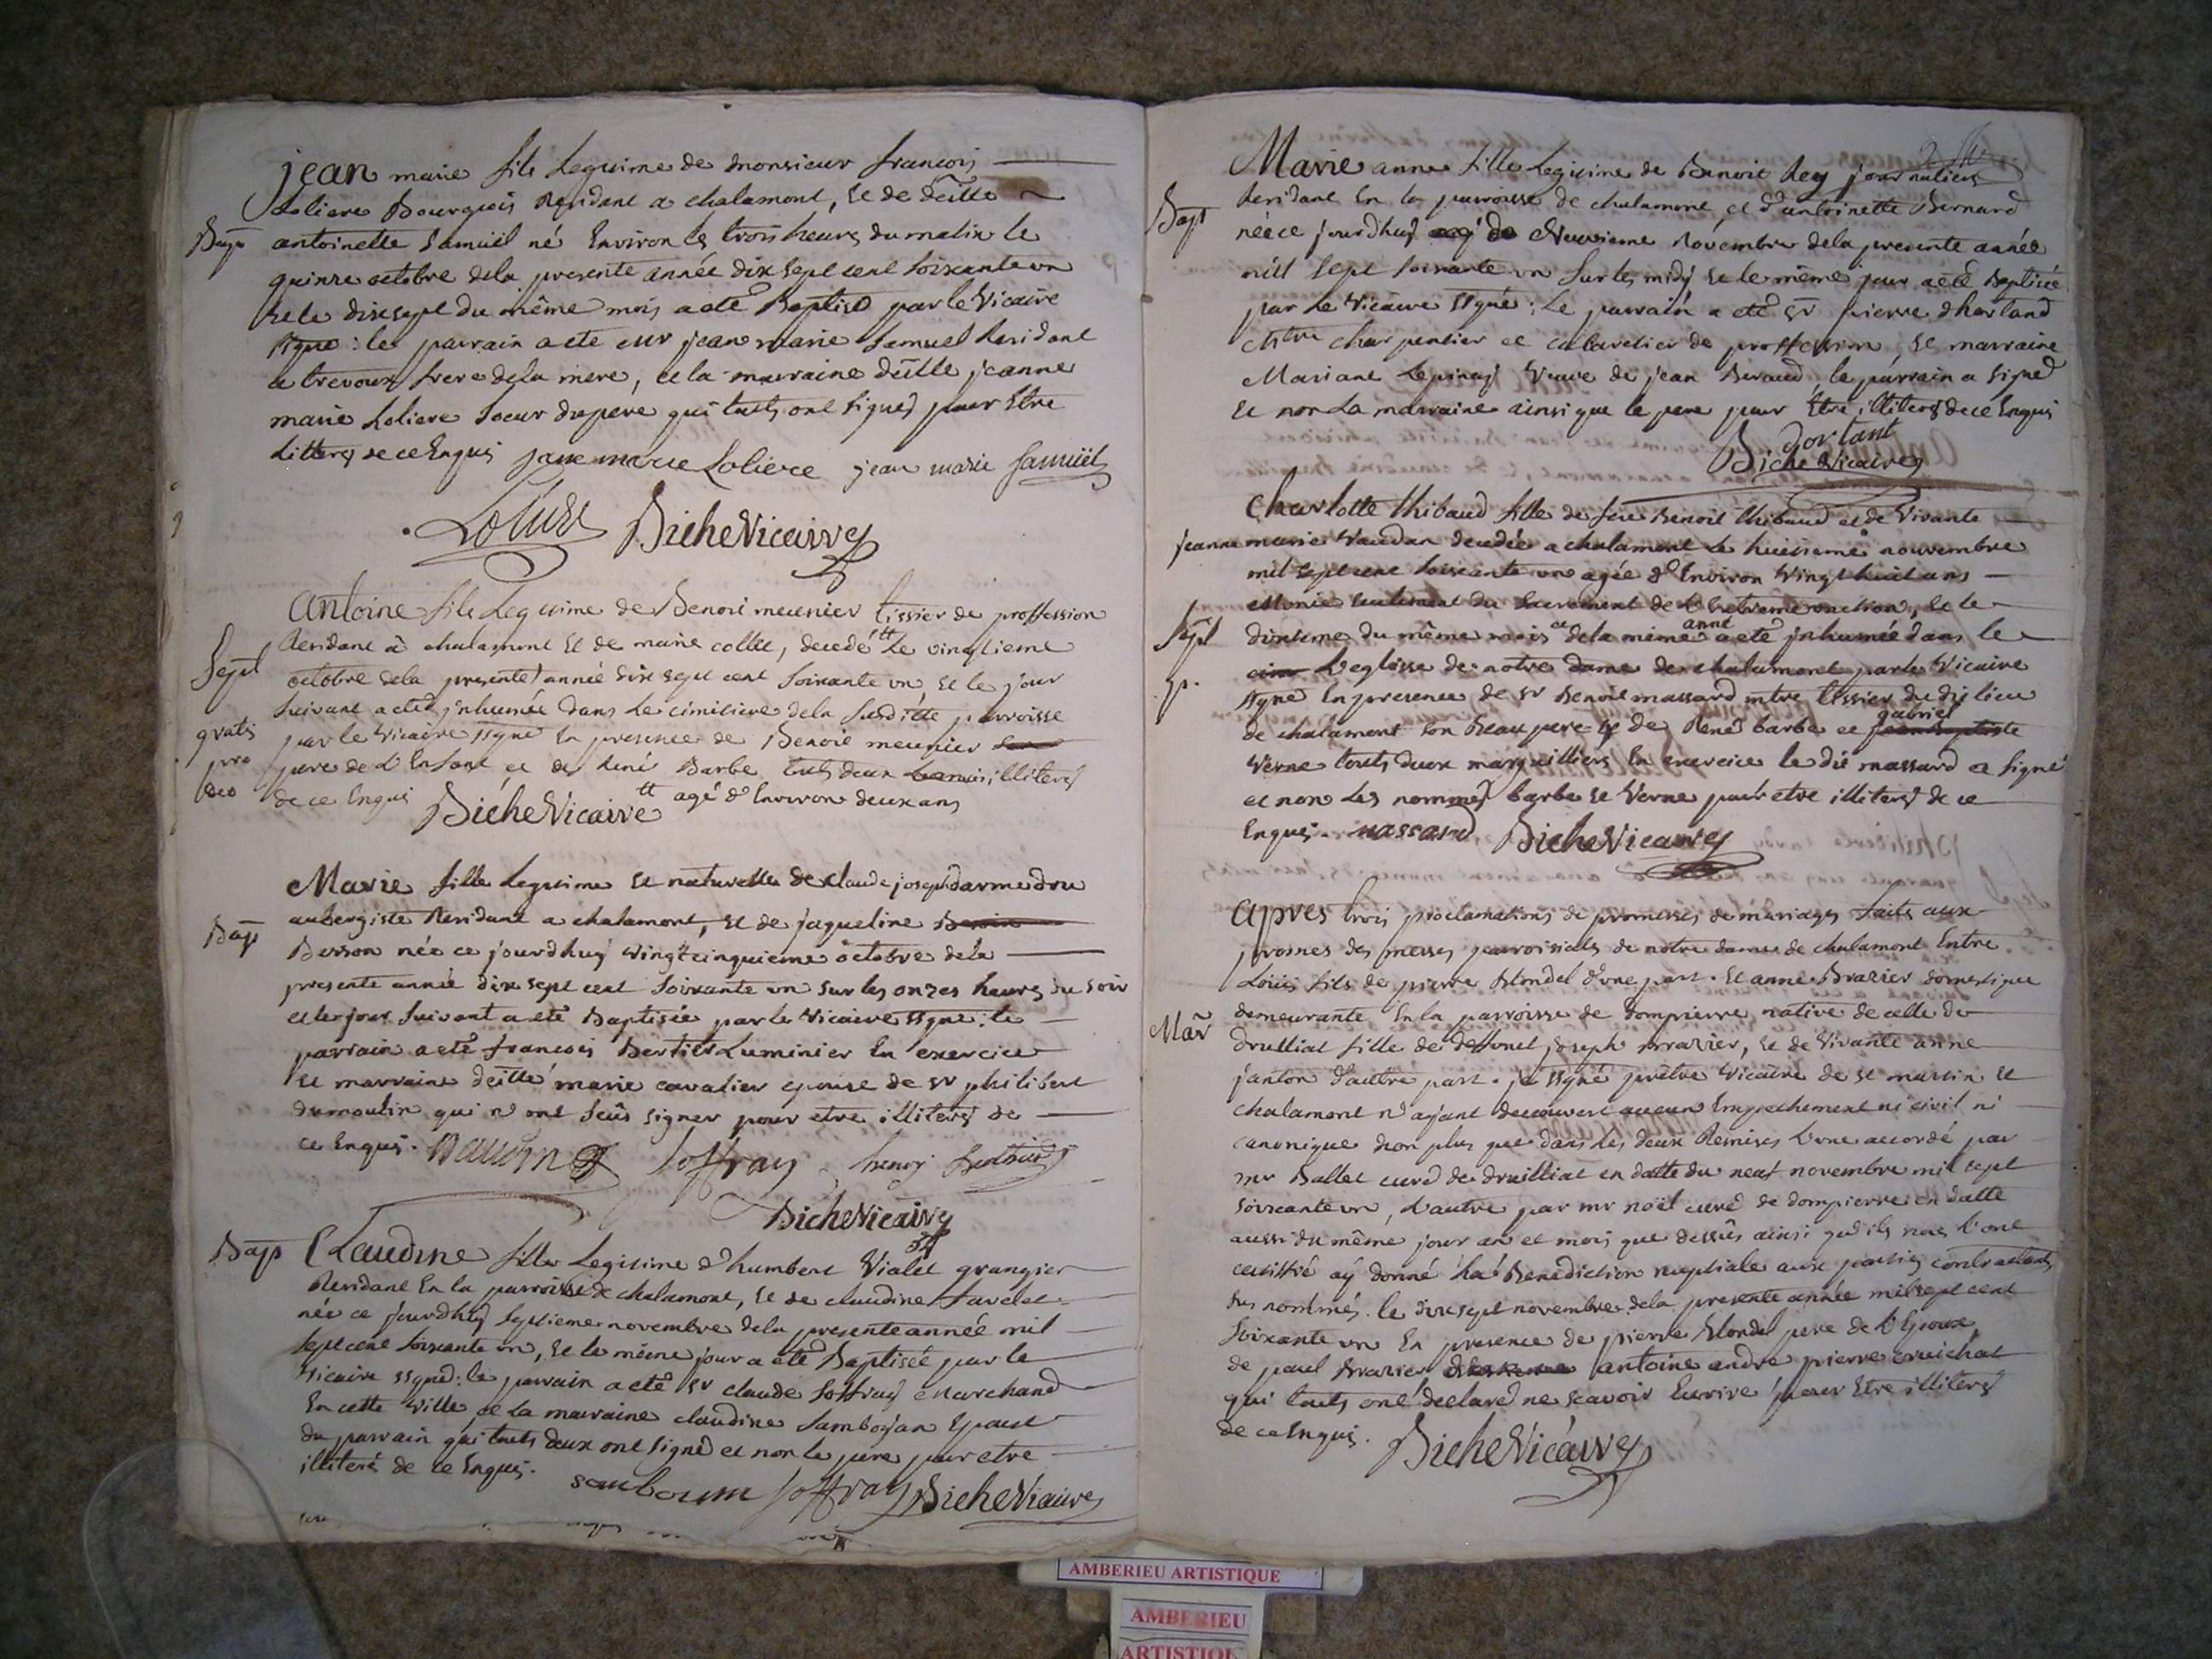 jean marie fils Legitime de monsieur francois
Loliere Bourgeois Residant a chalamont, et de deitte
Bapt
antoinette Samuël né Environ les trois heures du matin le
quinze octobre de la presente année dix sept cent soixante un
et le dixsept du même mois a eté Baptisé par le Vicaire
ssigné : le parrain a ete sieur jean marie Samuel Residant
a trevoux frere de la mere, et la marraine deitte jeanne
marie Loliere soeur du pere qui touts ont signes pour Etre
Litteres de ce Enquis jane marie Loliere jean marie Samuël
Loliere Biche Vicaire
antoine fils Legitime de Benoit meunier tissier de proffession
Residant à chalamont et de marie collet, decedé tt Le vingtieme
Sept
octobre de la presente année dix sept cent soixante un, et le jour
suivant a eté inhumée dans le cimitiere de la susditte parroisse
gratis
par le Vicaire ssigné En presence de Benoit meunier
pro
pere de L'Enfant et de René Barbe touts deux illiteres
deo
de ce Enquis Biche Vicaire tt agé d'Environ deux ans
Marie fille Legitime et naturelle de claude joseph darmedru
aubergiste Residant a chalamont, et de jaqueline
Bapt
Berson née ce jourdhuy vingtcinquieme octobre de la
presente année dix sept cent soixante un sur les onzes heures du soir
et le jour suivant a eté Baptisée par le Vicaire ssigné : le
parrain a eté francois Bertier Luminier En exercice
et marraine deitte marie cavalier epouse de sr philibert
dumoulin qui n'ont seus signer pour etre illiteres de
ce Enquis. soffray henry
Biche Vicaire
Bapt
Claudine fille Legitime d'humbert Vialet grangier
Residant En la parroisse de chalamont, et de claudine
née ce jourdhuy septieme novembre de la presente année mil
sept cent soixante un, et le même jour a eté Baptisée par le
Vicaire ssigné : le parrain a eté sr claude soffray Marchand
En cette ville, et la marraine claudine Sambojan Epouse
du parrain qui touts deux ont signé et non le pere pour etre
illiteré de ce Enquis. soffray Biche Vicaire
Marie anne fille Legitime de Benoit Rey journalier
Residant En la parroisse de chalamont et d'antoinette Bernard
Bapt
née ce jourdhuy Neuvieme Novembre de la presente année
mil sept soixante un sur les midy et le même jour a eté Baptisée
par le Vicaire ssigné : Le parrain a eté sr pierre dhortand
mtre charpentier et cabaretier de proffession, et marraine
Mariane Lepinay veuve de jean Beraud, le parrain a signé
et non la marraine ainsi que le pere pour Etre illiteres de ce Enquis
dortant
Biche Vicaire
Charlotte thibaud fille de feu Benoit thibaud et de Vivante
jeanne marie Vaudan decedée a chalamont le huitieme nouvembre
mil sept cent soixante un agée d'Environ Vingt huit ans
Munie seulement du sacrement de L'Extreme onction, et le
Sept
dixieme du même mois et de la même anné a eté jnhumée dans le
gr.
L'eglisse de notre dame de chalamont par le Vicaire
ssigné En presence de sr Benoit massard mtre tissier du dis lieu
de chalamont son Beaupere et de René barbe et gabriel
Verne touts deux marguilliers En exercice le dit massard a signé
et non Les nommes barbe et Verne pour etre illiteres de ce
Enquis. massard Biche Vicaire
apres trois proclamations de promesses de mariages faits aux
prosnes des messes parroissiales de notre dame de chalamont Entre
Loüis fils de pierre Blondel d'une part. Et anne Brazier domestique
Mar
demeurante En la parroisse de dompierre native de celle de
druillat fille de deffunct joseph Brazier, et de Vivante anne
janton d'autre part. je ssigné pretre Vicaire de st martin et
chalamont n'ayant decouvert aucun Empechement ni civil ni
canonique non plus que dans les deux Remises L'une accordé par
mr Ballet curé de druilliat en datte du neuf novembre mil sept
soixante un, L'autre par mr noël curé de dompierre en datte
aussi du même jour an et mois que dessûs ainsi qu'ils nous l'ont
certiffié aÿ donné la Benediction nuptiale aux parties contractants
sus nommés. le dixsept novembre de la presente année mil sept cent
soixante un En presence de pierre Blondel pere de l'Epoux
de paul Brazier antoine andré pierre cruichat
qui touts ont declaré ne scavoir Ecrire pour Etre illiteres
de ce Enquis. Biche Vicaire
AMBERIEU ARTISTIQUE
AMBERIEU
ARTISTIQUE